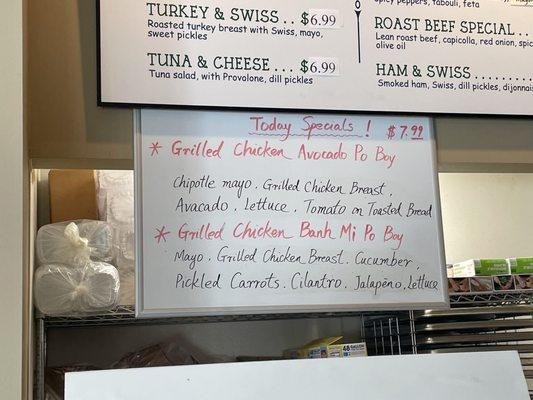 TURKEY & SWISS . . $6.99
Roasted turkey breast with Swiss, mayo,
sweet pickles
TUNA & CHEESE . . . $6.99
Tuna salad, with Provolone, dill pickles
spicy peppers, tabouli, feta
ROAST BEEF SPECIAL . .
Lean roast beef, capicolla, red onion, spic
olive oil
HAM & SWISS . . . . . . . . .
Smoked ham, Swiss, dill pickles, dijonnais
Today Specials ! $7.99
* Grilled Chicken Avocado Po Boy
chipotle mayo. Grilled Chicken Breast.
Avacado. Lettuce. Tomato on Toasted Bread
* Grilled Chicken Banh Mi Po Boy
Mayo. Grilled Chicken Breast. Cucumber.
Pickled Carrots. Cilantro. Jalapeño. Lettuce